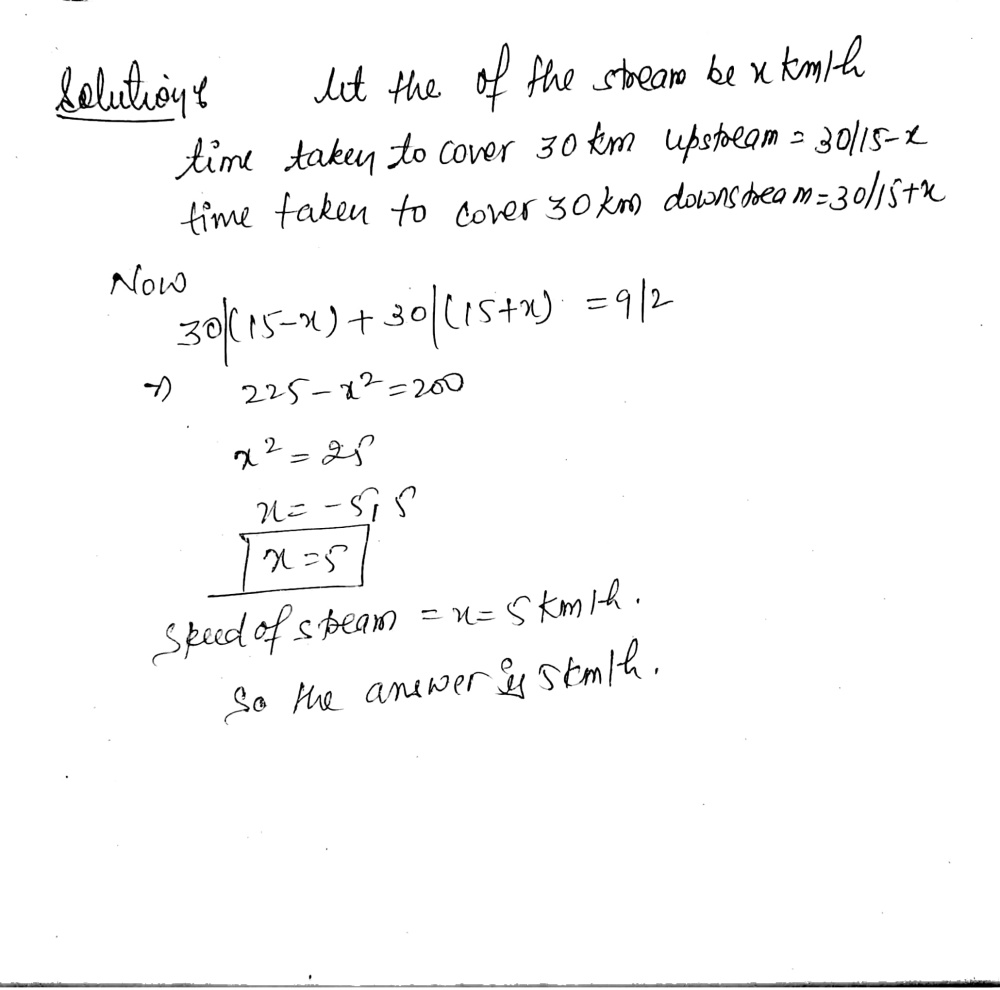 Solution:   let the of the stream be x km/h
time taken to cover 30 km upstream = 30/15-x
time taken to cover 30 km downstream = 30/15+x
Now
30/(15-x) + 30/(15+x) = 9/2
⇒ 225 - x² = 200
x² = 25
x = -5, 5
x = 5
Speed of stream = x = 5 km/h.
So the answer is 5 km/h.